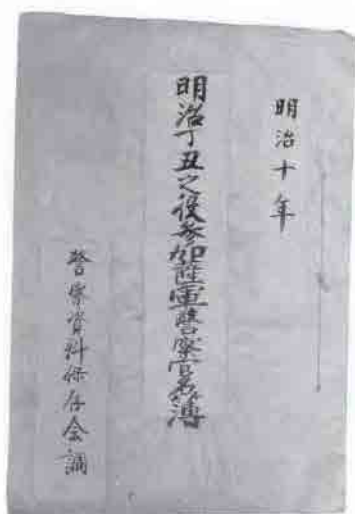 明治十年
明治丁丑之役参加陸軍警察官名簿
警察資料保存会調